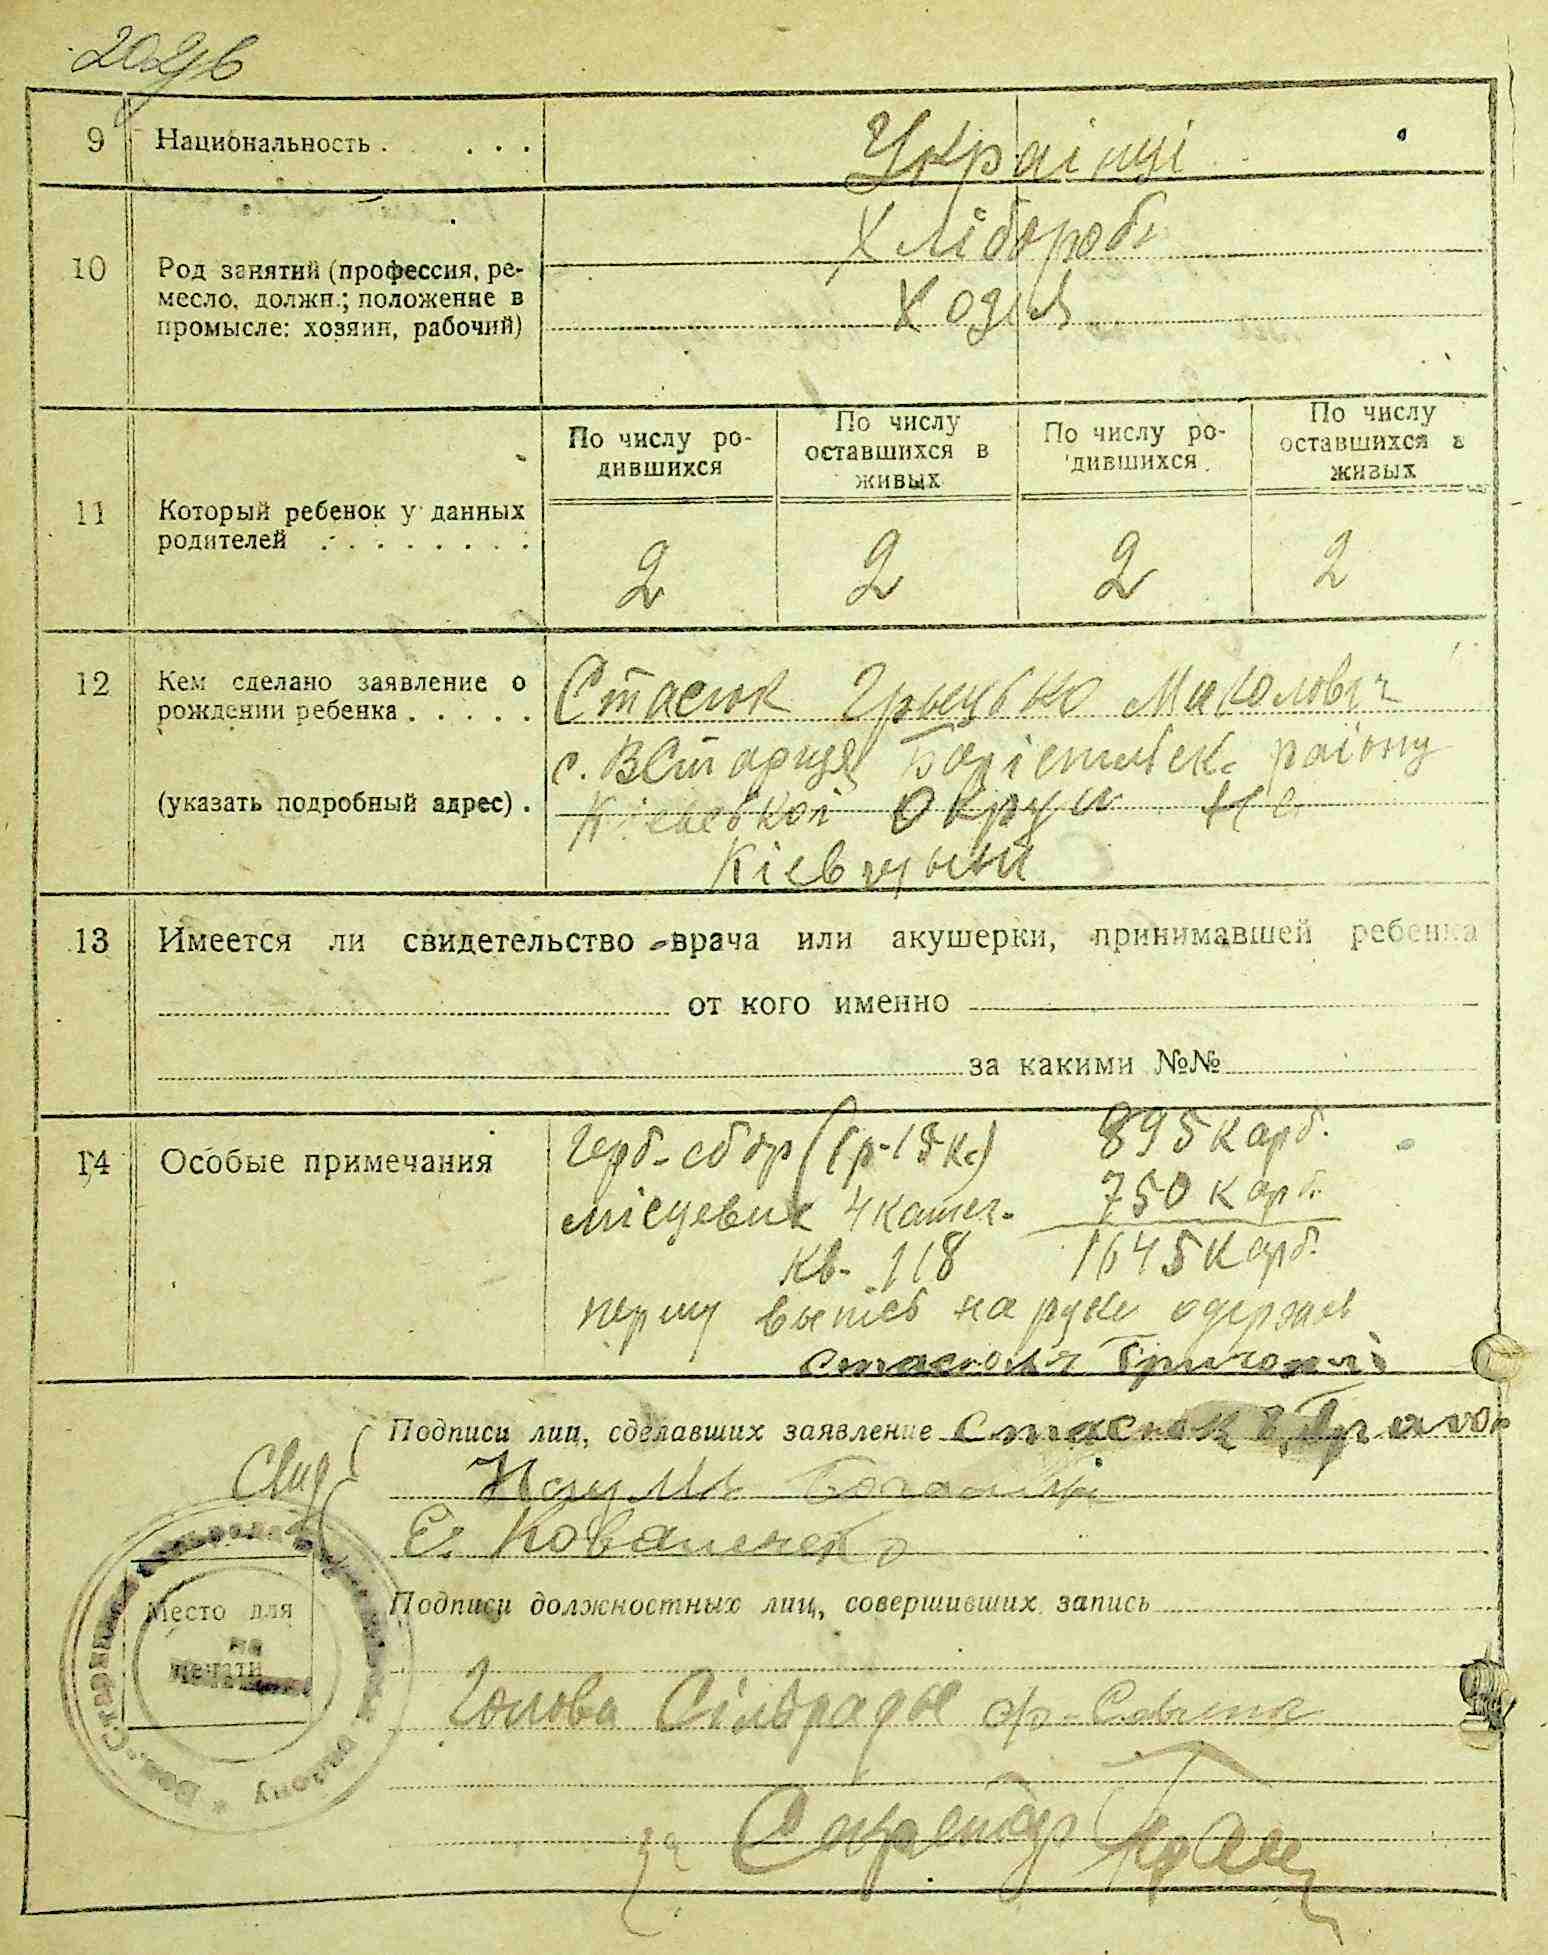 9 Национальность . . . . Українці
10 Род занятий (профессия, ре-
месло, должн.; положение в
промысле: хозяин, рабочий)
Хлібороби
Хозяін
По числу ро-
дившихся
По числу
оставшихся в
живых
По числу ро-
дившихся
По числу
оставшихся в
живых
11 Который ребенок у данных
родителей . . . . . . . .
2 2 2 2
12 Кем сделано заявление о
рождении ребенка . . . . .
(указать подробный адрес) .
Стасюк Грыцько Миколович
с. ВСтарица району
Округи на
Кіевщыні
13 Имеется ли свидетельство врача или акушерки, принимавшей ребенка
от кого именно
за какими №№
14 Особые примечания
Герб. сбор (1р-18к.) 895 карб.
місцевих 4 катег. 750 карб.
Кв. 118 1645 карб.
першу выпісь на руки одержав
Григорій
Подписи лиц, сделавших заявление Стасюк
Свид.
Наум
Є. Коваленко
Место для
печати
Подписи должностных лиц, совершивших запись
Голова Сільрады
за Секретар